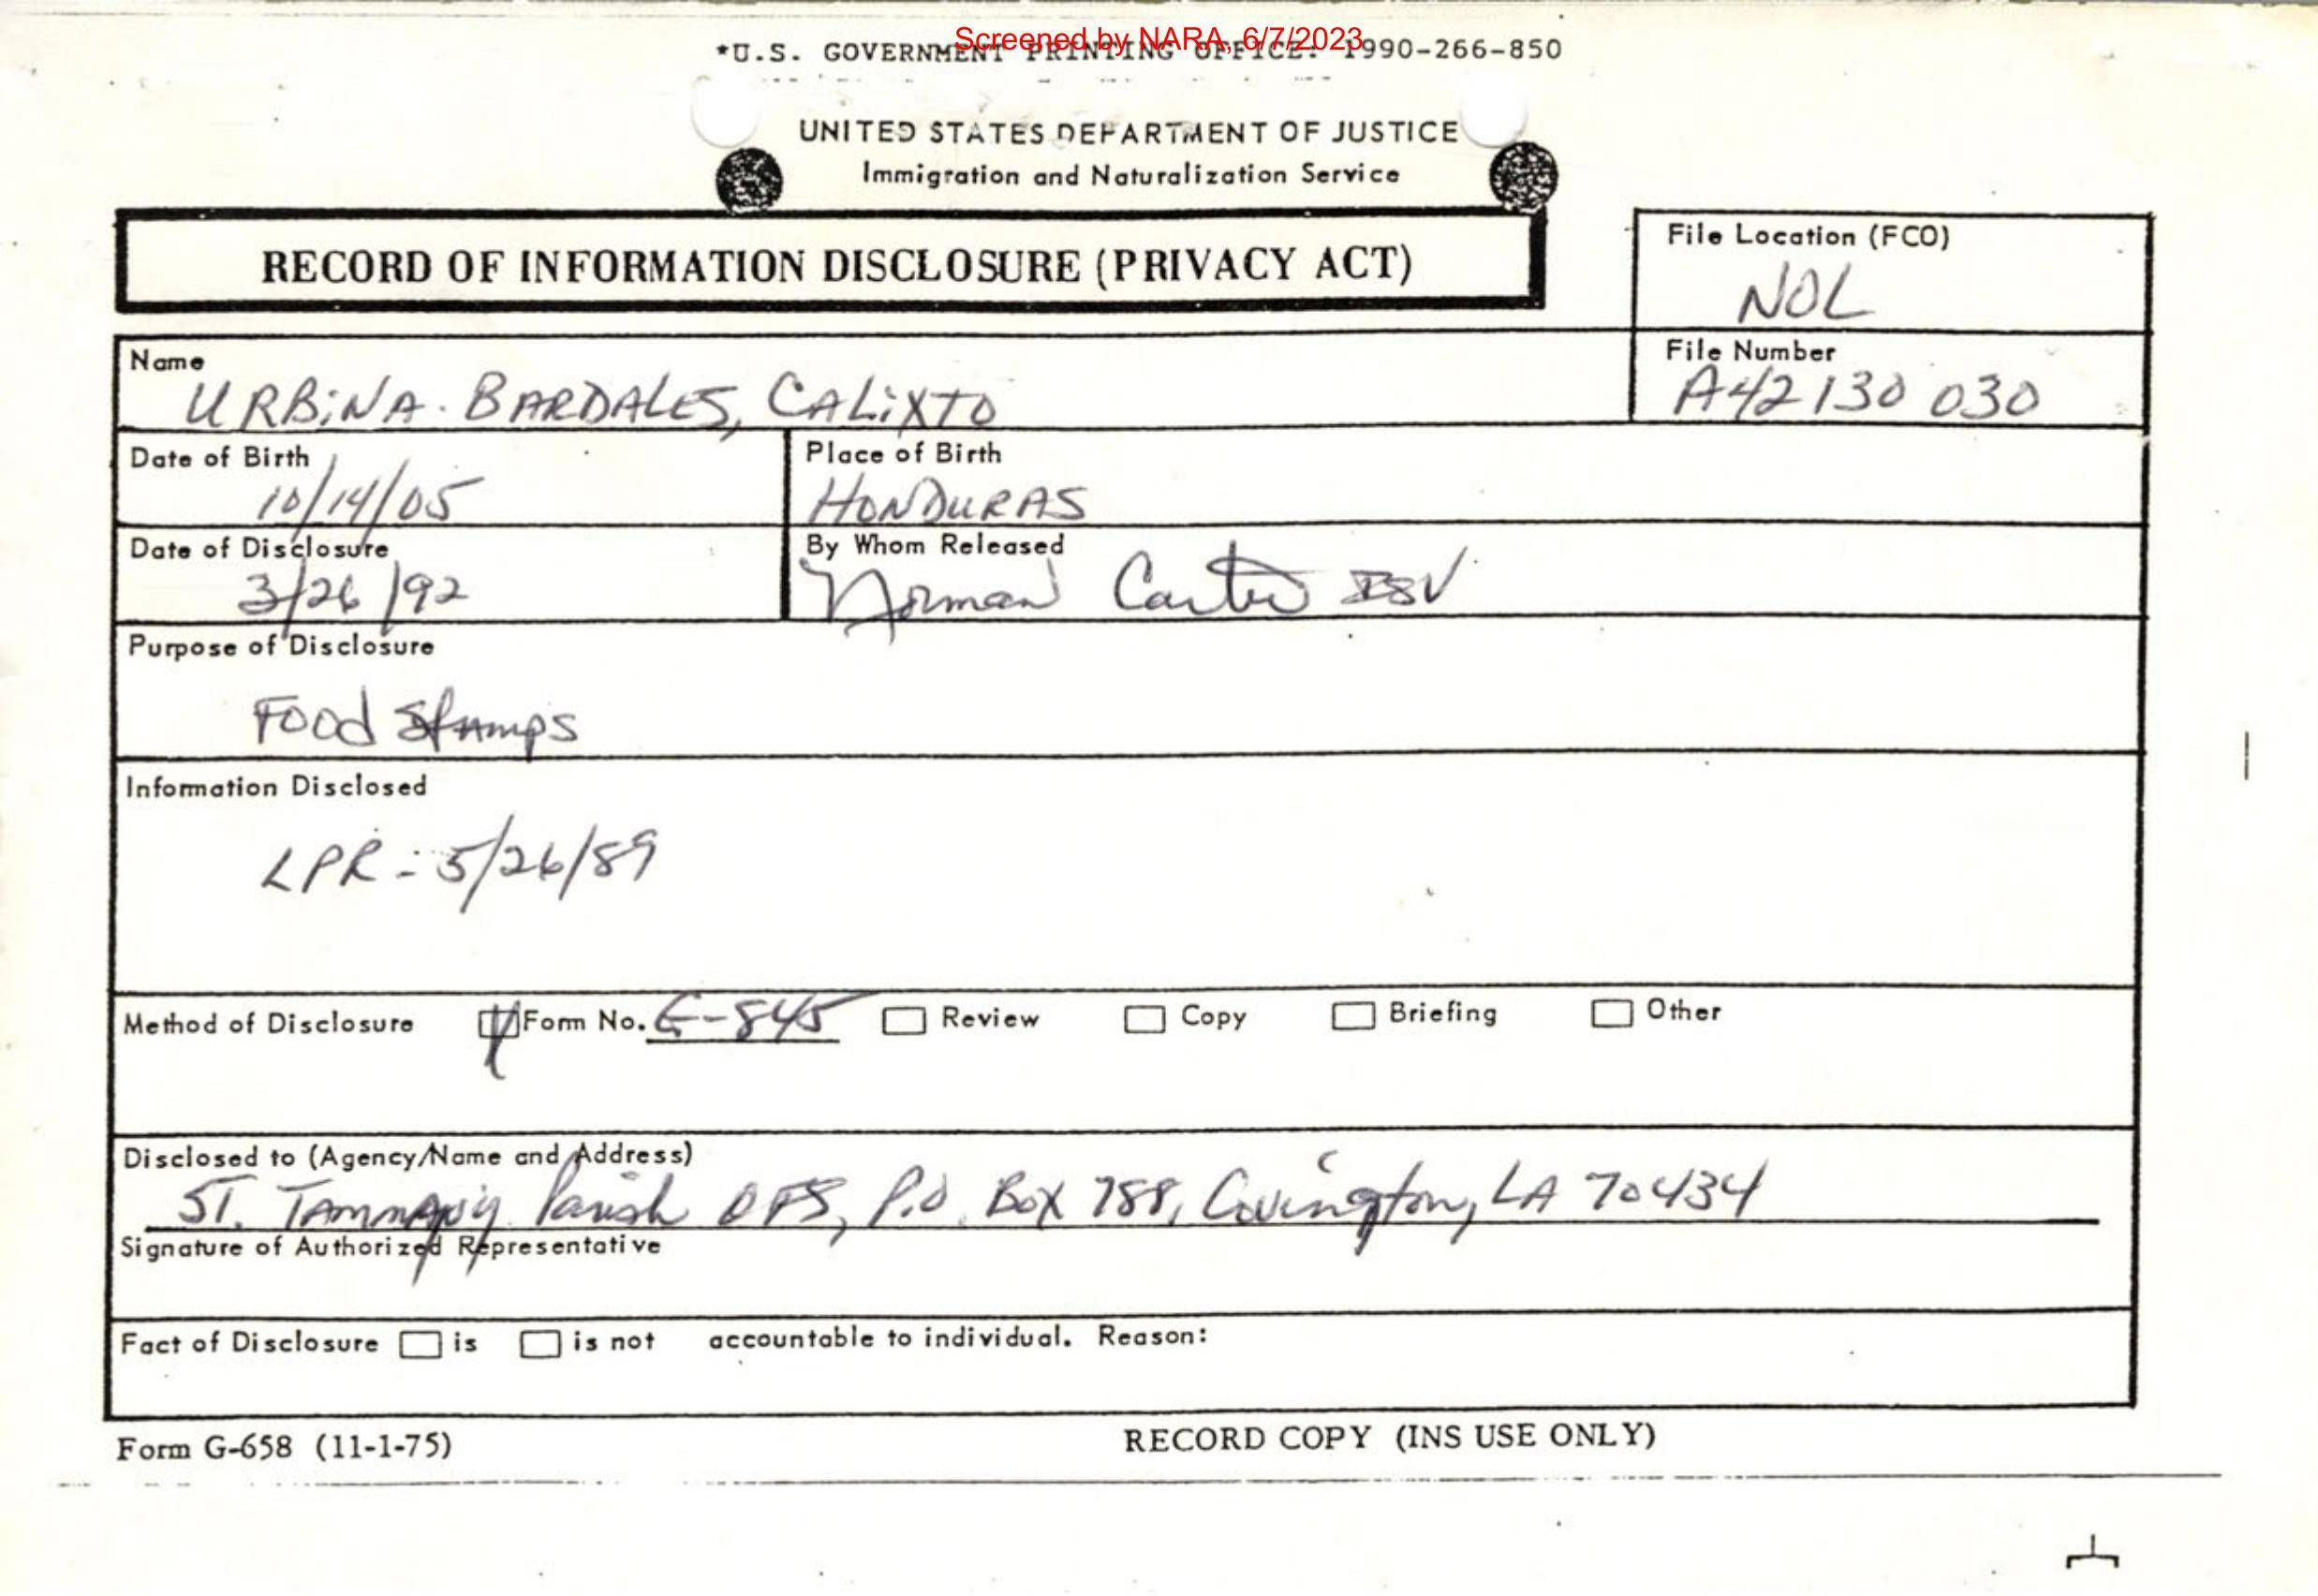 Screened by NARA, 6/7/2023
*U.S. GOVERNMENT PRINTING OFFICE: 1990-266-850
UNITED STATES DEPARTMENT OF JUSTICE
Immigration and Naturalization Service
RECORD OF INFORMATION DISCLOSURE (PRIVACY ACT)
File Location (FCO)
NOL
Name
URBINA-BARDALES, CALIXTO
File Number
A42 130 030
Date of Birth
10/14/05
Place of Birth
HONDURAS
Date of Disclosure
3/26/92
By Whom Released
Norman Carter ISV
Purpose of Disclosure
Food Stamps
Information Disclosed
LPR - 5/26/89
Method of Disclosure Form No. G-845 Review Copy Briefing Other
Disclosed to (Agency/Name and Address)
ST. Tammany Parish OFS, P.O. Box 788, Covington, LA 70434
Signature of Authorized Representative
Fact of Disclosure is is not accountable to individual. Reason:
Form G-658 (11-1-75)
RECORD COPY (INS USE ONLY)